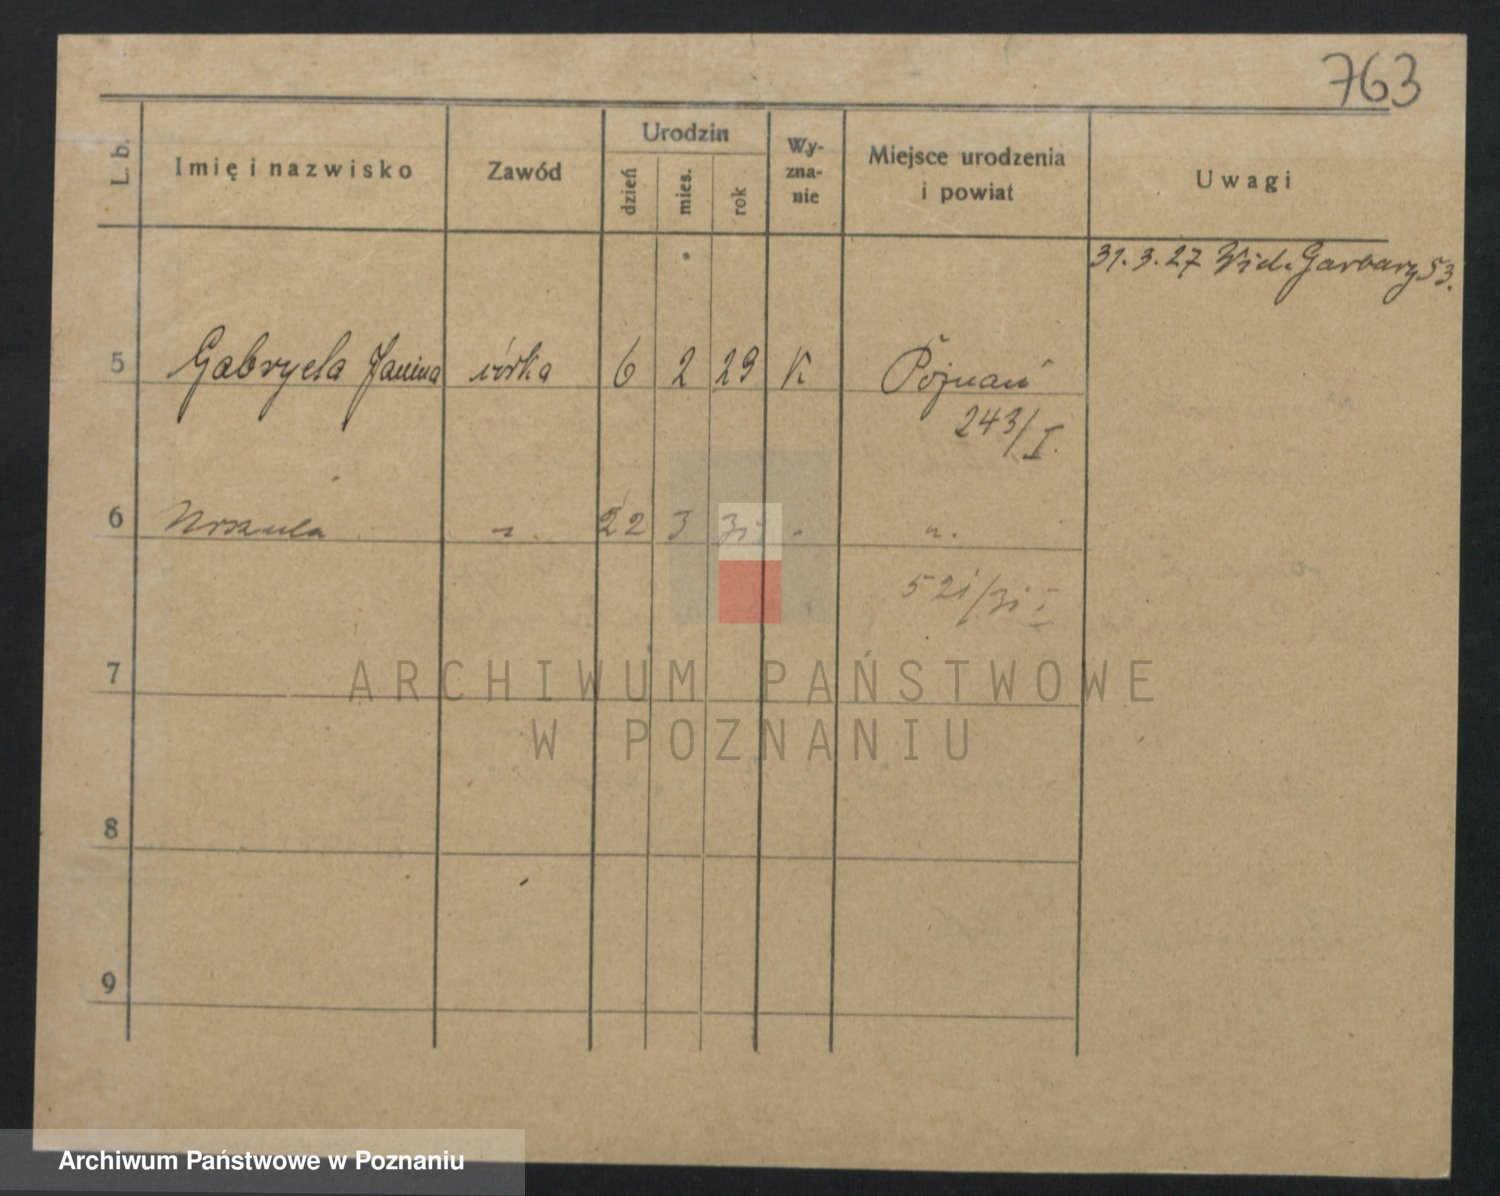 763
L. b.
Imię i nazwisko
Zawód
Urodzin
dzień
mies.
rok
Wy-
zna-
nie
Miejsce urodzenia
i powiat
Uwagi
31. 3. 27 Wid. Garbary 53.
5 Gabryela Janina córka 6 2 29 K Poznań
243/I.
6 Urszula " 22 3 31 " "
521/31 I
7
8
9
ARCHIWUM PAŃSTWOWE
W POZNANIU
Archiwum Państwowe w Poznaniu